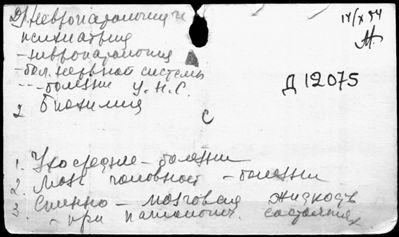 Д) Невропатология и
психиатрия
- невропатология
- бол. нервной системы
--- болезни Ц.Н.С.
2 биохимия
14/X 54
Д 12075
С
1. Ухо среднее - болезни
2. Мозг головной - болезни
3. Спинно - мозговая жидкость
- при патологич. состояниях